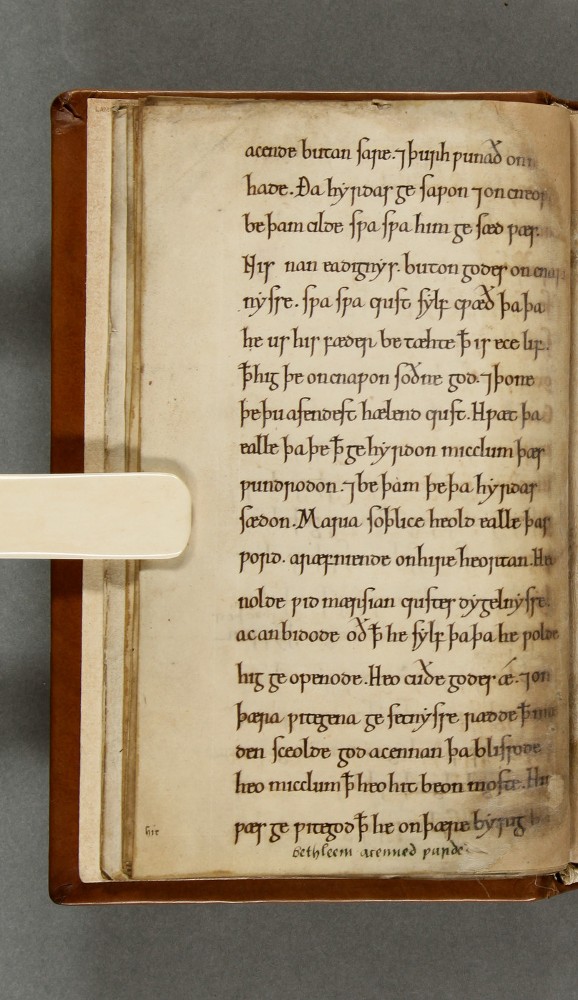 acende butan sare. ⁊ þurh ƿunað on
hade. Ða hyrdas ge saƿon ⁊ oncneoƿ
be þam cilde sƿa sƿa him ge sæd ƿæs.
Nis nan eadignys. buton godes on cnaƿ
nysse. sƿa sƿa crist sylf cƿæð þa þa
he us his fæder betæhte ꝥ is ece lif.
ꝥ hig þe oncnaƿon soðne god. ⁊ þone
þe þu asendest hælend crist. Hƿæt þa
ealle þa þe ꝥ ge hyrdon micclum þæs
ƿundrodon. ⁊ be þam þe þa hyrdas
sædon. Maria soþlice heold ealle þas
ƿord. aræfniende on hire heortan. Heo
nolde ƿidmærsian cristes dygelnysse.
ac anbidode oð ꝥ he sylf þa þa he ƿolde
hig ge openode. Heo cuðe godes ǽ. ⁊ on
þæra ƿitegena ge setnysse rædde ꝥ mæ
den sceolde god acennan þa blissode
heo micclum ꝥ heo hit beon moste. Hit
ƿæs ge ƿitegod ꝥ he on þære byrig
bethleem acenned ƿurde
hit